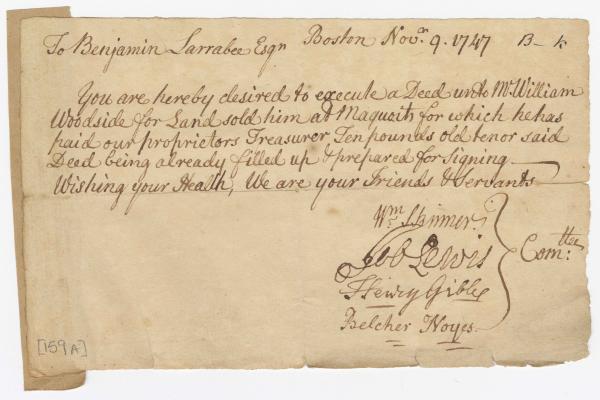 To Benjamin Larrabee Esqr Boston Novr. 9. 1747 B-k
You are hereby desired to execute a Deed unto Mr. William
Woodside for Land sold him at Maquoit for which he has
paid our proprietors Treasurer Ten pounds old tenor said
Deed being already filled up & prepared for Signing
Wishing your Health, We are your Friends & Servants
Wm Skinner.
Job Lewis
Comttee:
Henry Gibbs
Belcher Noyes
[159A]